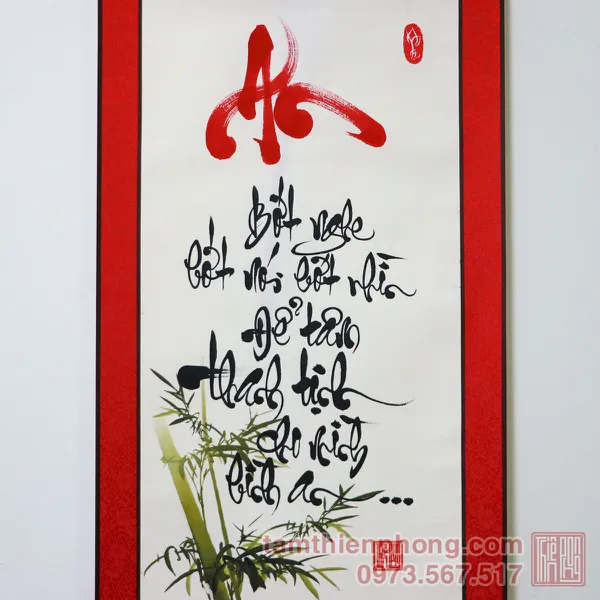 An
Bớt nghe
bớt nói bớt nhìn
Để tâm
thanh tịnh
cho mình
bình an ...
tamthienphong.com
0973.567.517